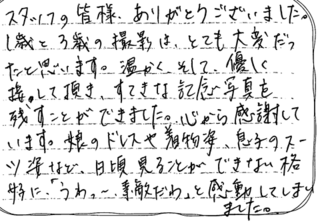 スタッフの皆様、ありがとうございました。
1歳と3歳の撮影は、とても大変だっ
たと思います。温かく、そして、優しく
接して頂き、すてきな記念写真を
残すことができました。心から感謝して
います。娘のドレスや着物姿、息子のスー
ツ姿など、日頃見ることができない格
好に、「うわぁ〜素敵だわ」と感動してしまい
ました。